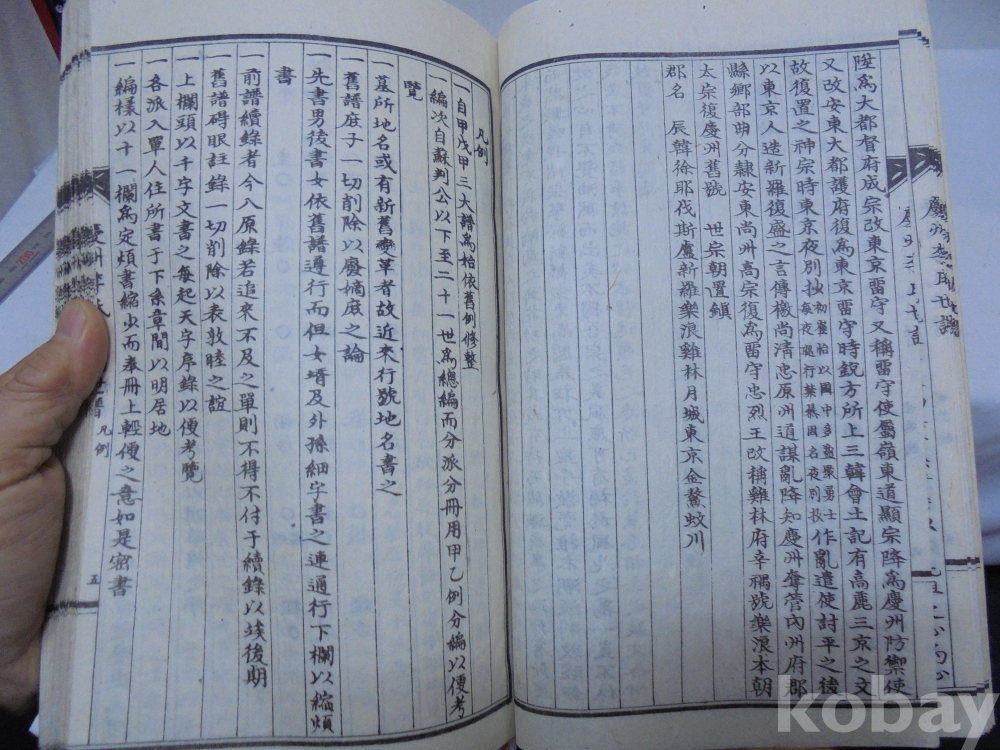 陞爲大都督府成宗改東京畱守又稱畱守使屬嶺東道顯宗降爲慶州防禦使
又改安東大都護府復爲東京畱守時銳方所上三韓會土記有高麗三京之文
故復置之神宗時東京夜別抄作亂遣使討平之後
以東京人造新羅復盛之言傳檄尚淸忠原州道謀亂降知慶州奪管內州府郡
縣鄕部曲分隷安東尚州高宗復爲畱守忠烈王改稱雞林府辛禑號樂浪本朝
太宗復慶州舊號 世宗朝置鎭
郡名 辰韓徐耶伐斯盧新羅樂浪雞林月城東京金鰲蚊川
凡例
一自甲戊甲三大譜爲始依舊例修整
一編次自蘇判公以下至二十一世爲總編而分派分冊用甲乙例分編以便考
覽
一墓所地名或有新舊變革者故近來行號地名書之
一舊譜庶子一切削除以廢嫡庶之論
一先書男後書女依舊譜遵行而但女壻及外孫細字書之連通行下欄以縮煩
書
前譜續錄者今入原錄若追來不及之單則不得不付于續錄以竢後期
舊譜碍眼註錄一切削除以表敦睦之誼
一上欄頭以千字文書之每起天字序錄以便考覽
一各派入單人住所書于下系章間以明居地
一編樣以十一欄爲定煩書縮少而奉冊上輕便之意如是密書
凡例
五
kobay